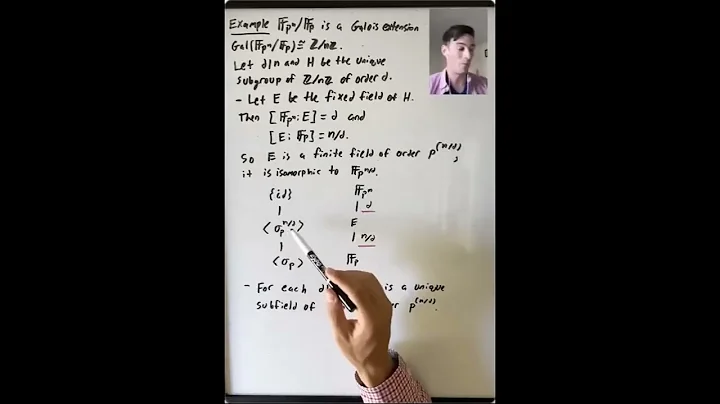 Example 𝔽pⁿ/𝔽p is a Galois extension
Gal(𝔽pⁿ/𝔽p) ≅ ℤ/nℤ.
Let d|n and H be the unique
subgroup of ℤ/nℤ of order d.
- Let E be the fixed field of H.
Then [𝔽pⁿ : E] = d and
[E : 𝔽p] = n/d.
So E is a finite field of order p^(n/d),
it is isomorphic to 𝔽p^n/d.
{id} 𝔽pⁿ
| | d
⟨σp^n/d⟩ E
| | n/d
⟨σp⟩ 𝔽p
- For each is a unique
subfield of p^(n/d).